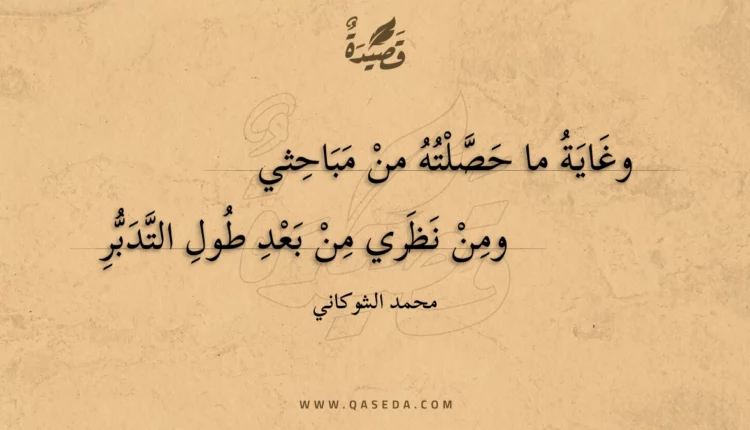 قَصِيْدَةٌ
وغَايَةُ ما حَصَّلْتُهُ منْ مَبَاحِثي
ومِنْ نَظَري مِنْ بَعْدِ طُولِ التَّدَبُّرِ
محمد الشوكاني
WWW.QASEDA.COM